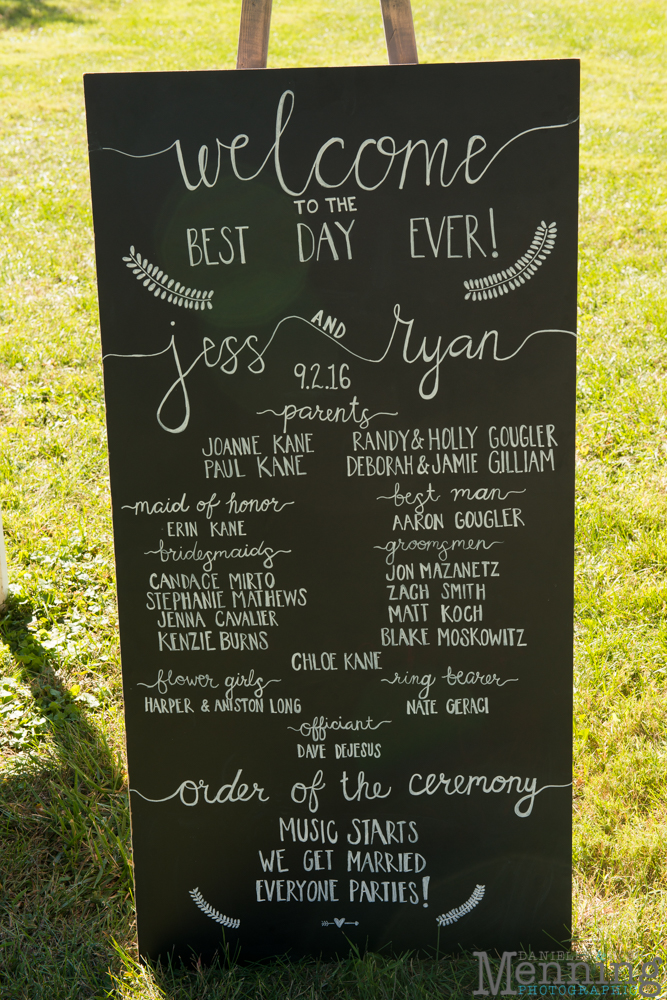 welcome
TO THE
BEST DAY EVER!
jess AND ryan
9.2.16
parents
JOANNE KANE RANDY & HOLLY GOUGLER
PAUL KANE DEBORAH & JAMIE GILLIAM
maid of honor best man
ERIN KANE AARON GOUGLER
bridesmaids groomsmen
CANDACE MIRTO JON MAZANETZ
STEPHANIE MATHEWS ZACH SMITH
JENNA CAVALIER MATT KOCH
KENZIE BURNS BLAKE MOSKOWITZ
CHLOE KANE
flower girls ring bearer
HARPER & ANISTON LONG NATE GERACI
officiant
DAVE DEJESUS
order of the ceremony
MUSIC STARTS
WE GET MARRIED
EVERYONE PARTIES!
Menning
PHOTOGRAPH